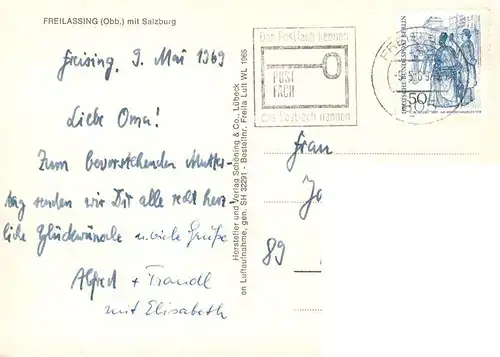 FREILASSING (Obb.) mit Salzburg
Freising, 9. Mai 1969
Liebe Oma!
Zum bevorstehenden Mutter-
tag senden wir Dir alle recht herz-
liche Glückwünsche u. viele Grüße
Alfred + Traudl
mit Elisabeth
Hersteller und Verlag Schöning & Co., Lübeck
en Luftaufnahme, gen. SH 32291 - Bestellnr. Freila Luft WL 1965
Das Postfach kennen
POST
FACH
das Postfach nennen
DEUTSCHE BUNDESPOST BERLIN
50
Frau
Jo
89